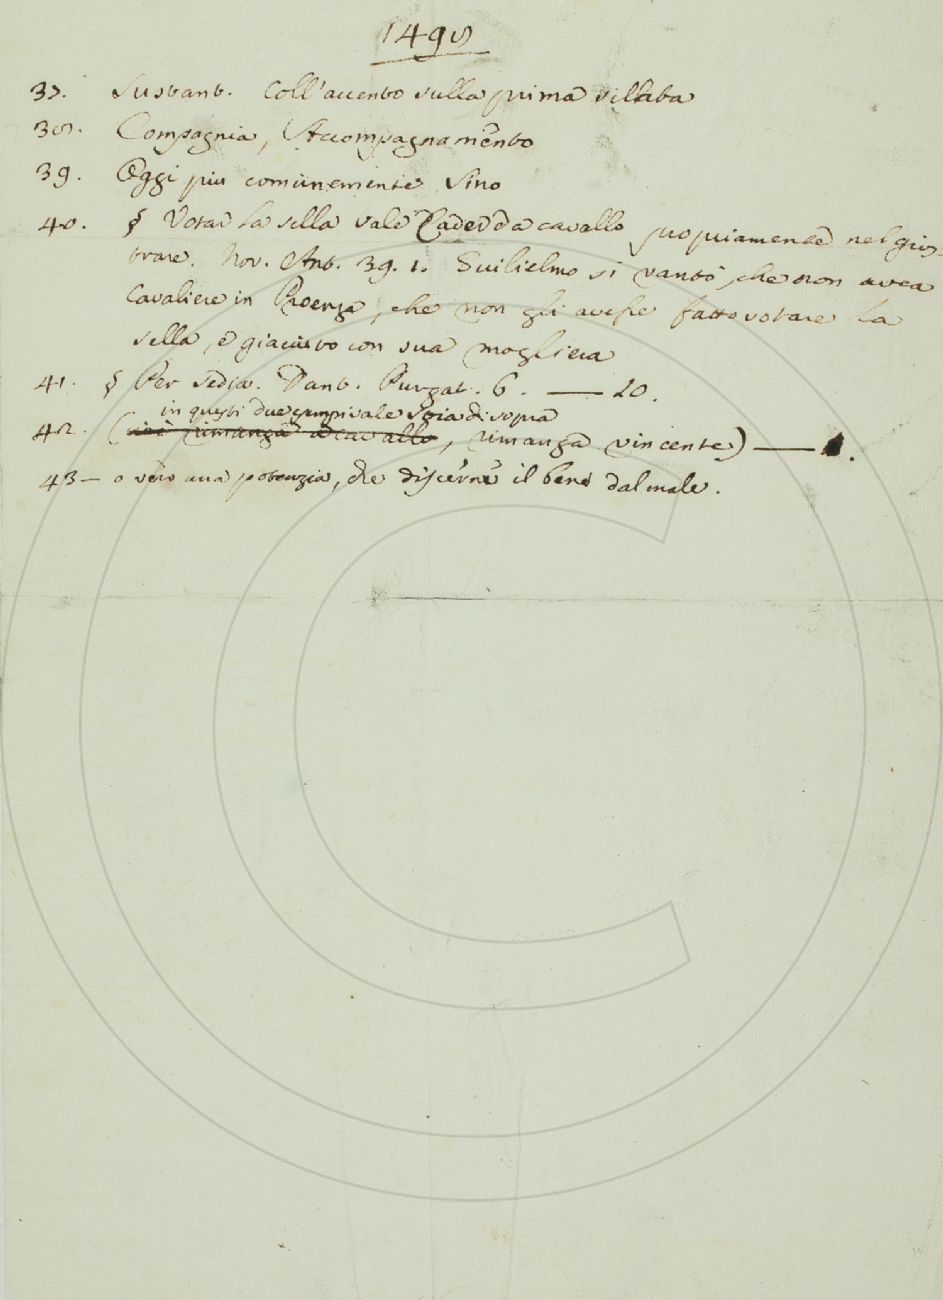 1498
37. Sustant. Coll'accento sulla prima sillaba
38. Compagnia, Accompagnamento
39. Oggi piu comunemente Sino
40. § Votar la sella vale Cader da cavallo propriamente nel gios-
trare. Nov. Ant. 39. 1. Guilielmo si vantò, che non avea
Cavaliere in Proenza, che non gli avesse fatto votare la
sella, e giaciuto con sua mogliera
41. § Per Sedia. Dant. Purgat. 6. — 10.
in questi due esempi vale Sedia di sopra
42. (cioè rimanga a cavallo, rimanga vincente) —
43 — o vero una potenzia, che discerne il bene dal male.